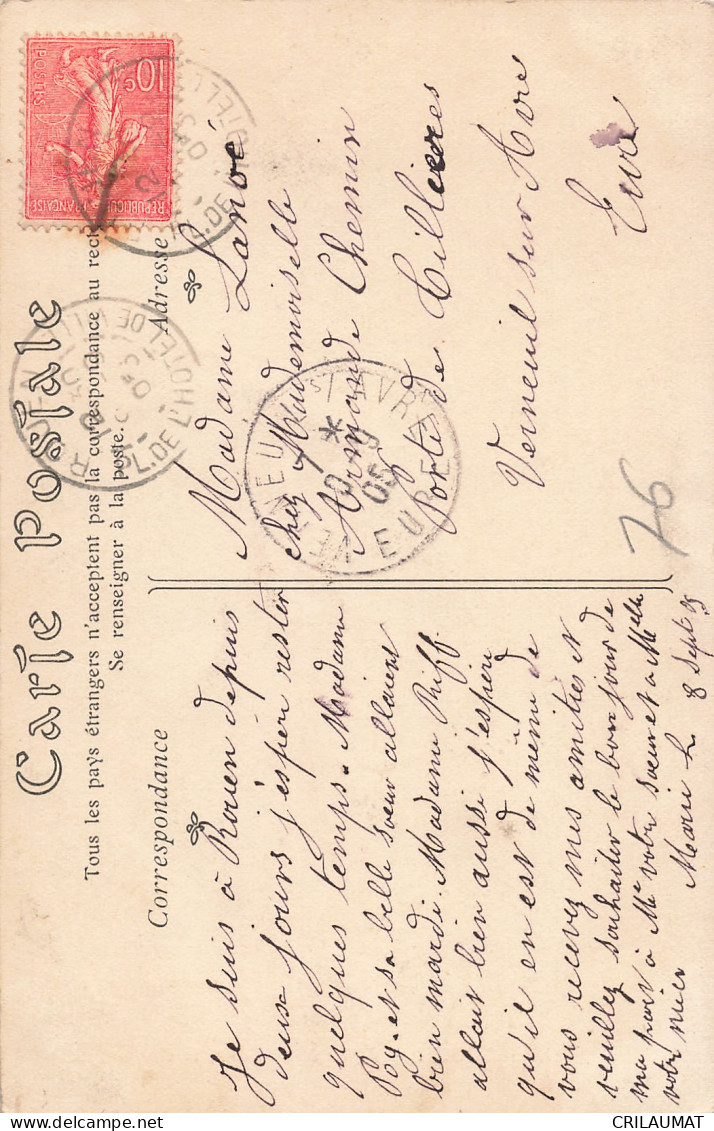 Carte Postale
Tous les pays étrangers n'acceptent pas la correspondance au recto
Se renseigner à la poste.
Correspondance
Adresse
Je suis à Rouen depuis
deux jours j'espère rester
quelques temps. Madame
Py. et sa belle sœur allaient
bien mardi. Madame Riff
allait bien aussi j'espère
qu'il en est de même de
vous recevez mes amitiés et
veuillez souhaiter le bonjour de
ma part à Mr votre sœur et à Melle
votre nièce Marie L. 8 Sept 05
Madame Lanoë
chez Mademoiselle
Armande Chemin
porte de Tillières
Verneuil sur Avre
Eure
76
10c
POSTES
RÉPUBLIQUE FRANÇAISE
ROUEN
PL. DE L'HOTEL DE VILLE
VERNEUIL S/ AVRE
7 *
10 -9
05
EURE
CRILAUMAT